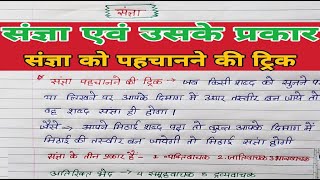 संज्ञा
संज्ञा एवं उसके प्रकार
संज्ञा को पहचानने की ट्रिक
* संज्ञा पहचानने की ट्रिक → जब किसी शब्द को सुनने पर
या लिखने पर आपके दिमाग में अगर तस्वीर बन जाये तो
वह शब्द संज्ञा ही होगा।
जैसे - आपने मिठाई शब्द पढ़ा तो तुरन्त आपके दिमाग में
मिठाई की तस्वीर बन जायेगी तो मिठाई संज्ञा होगी
संज्ञा के तीन प्रकार हैं - 1. व्यक्तिवाचक 2. जातिवाचक 3 भाववाचक
अतिरिक्त भेद → 4 समूहवाचक 5 द्रव्यवाचक